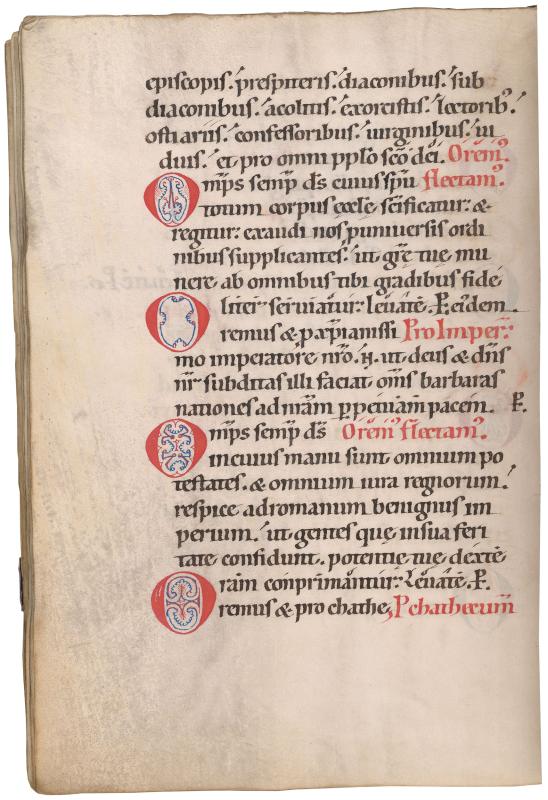 episcopis. prespiteris. diaconibus. sub
diaconibus. acolitis. exorcistis. lectorib'.
ostiariis. confessoribus. uirginibus. ui
duis. et pro omni pplo sco dei. Orem'.
Omps semp ds cuius spu flectam'.
totum corpus eccle scificatur. &
regitur. exaudi nos p uniuersis ordi
nibus supplicantes. ut gre tue mu
nere ab omnibus tibi gradibus fide
liter seruiatur. leuate. P. eundem.
Oremus & p xpianissi Pro Imper.
mo imperatore nro. N. ut deus & dns
nr subditas illi faciat oms barbaras
nationes ad nram perpetuam pacem. P.
Omps semp ds Orem' flectam'.
in cuius manu sunt omnium po
testates. & omnium iura regnorum.
respice ad romanum benignus im
perium. ut gentes que in sua feri
tate confidunt. potentie tue dexte
ram conprimantur. Leuate. P.
Oremus & pro cathe P chathecum